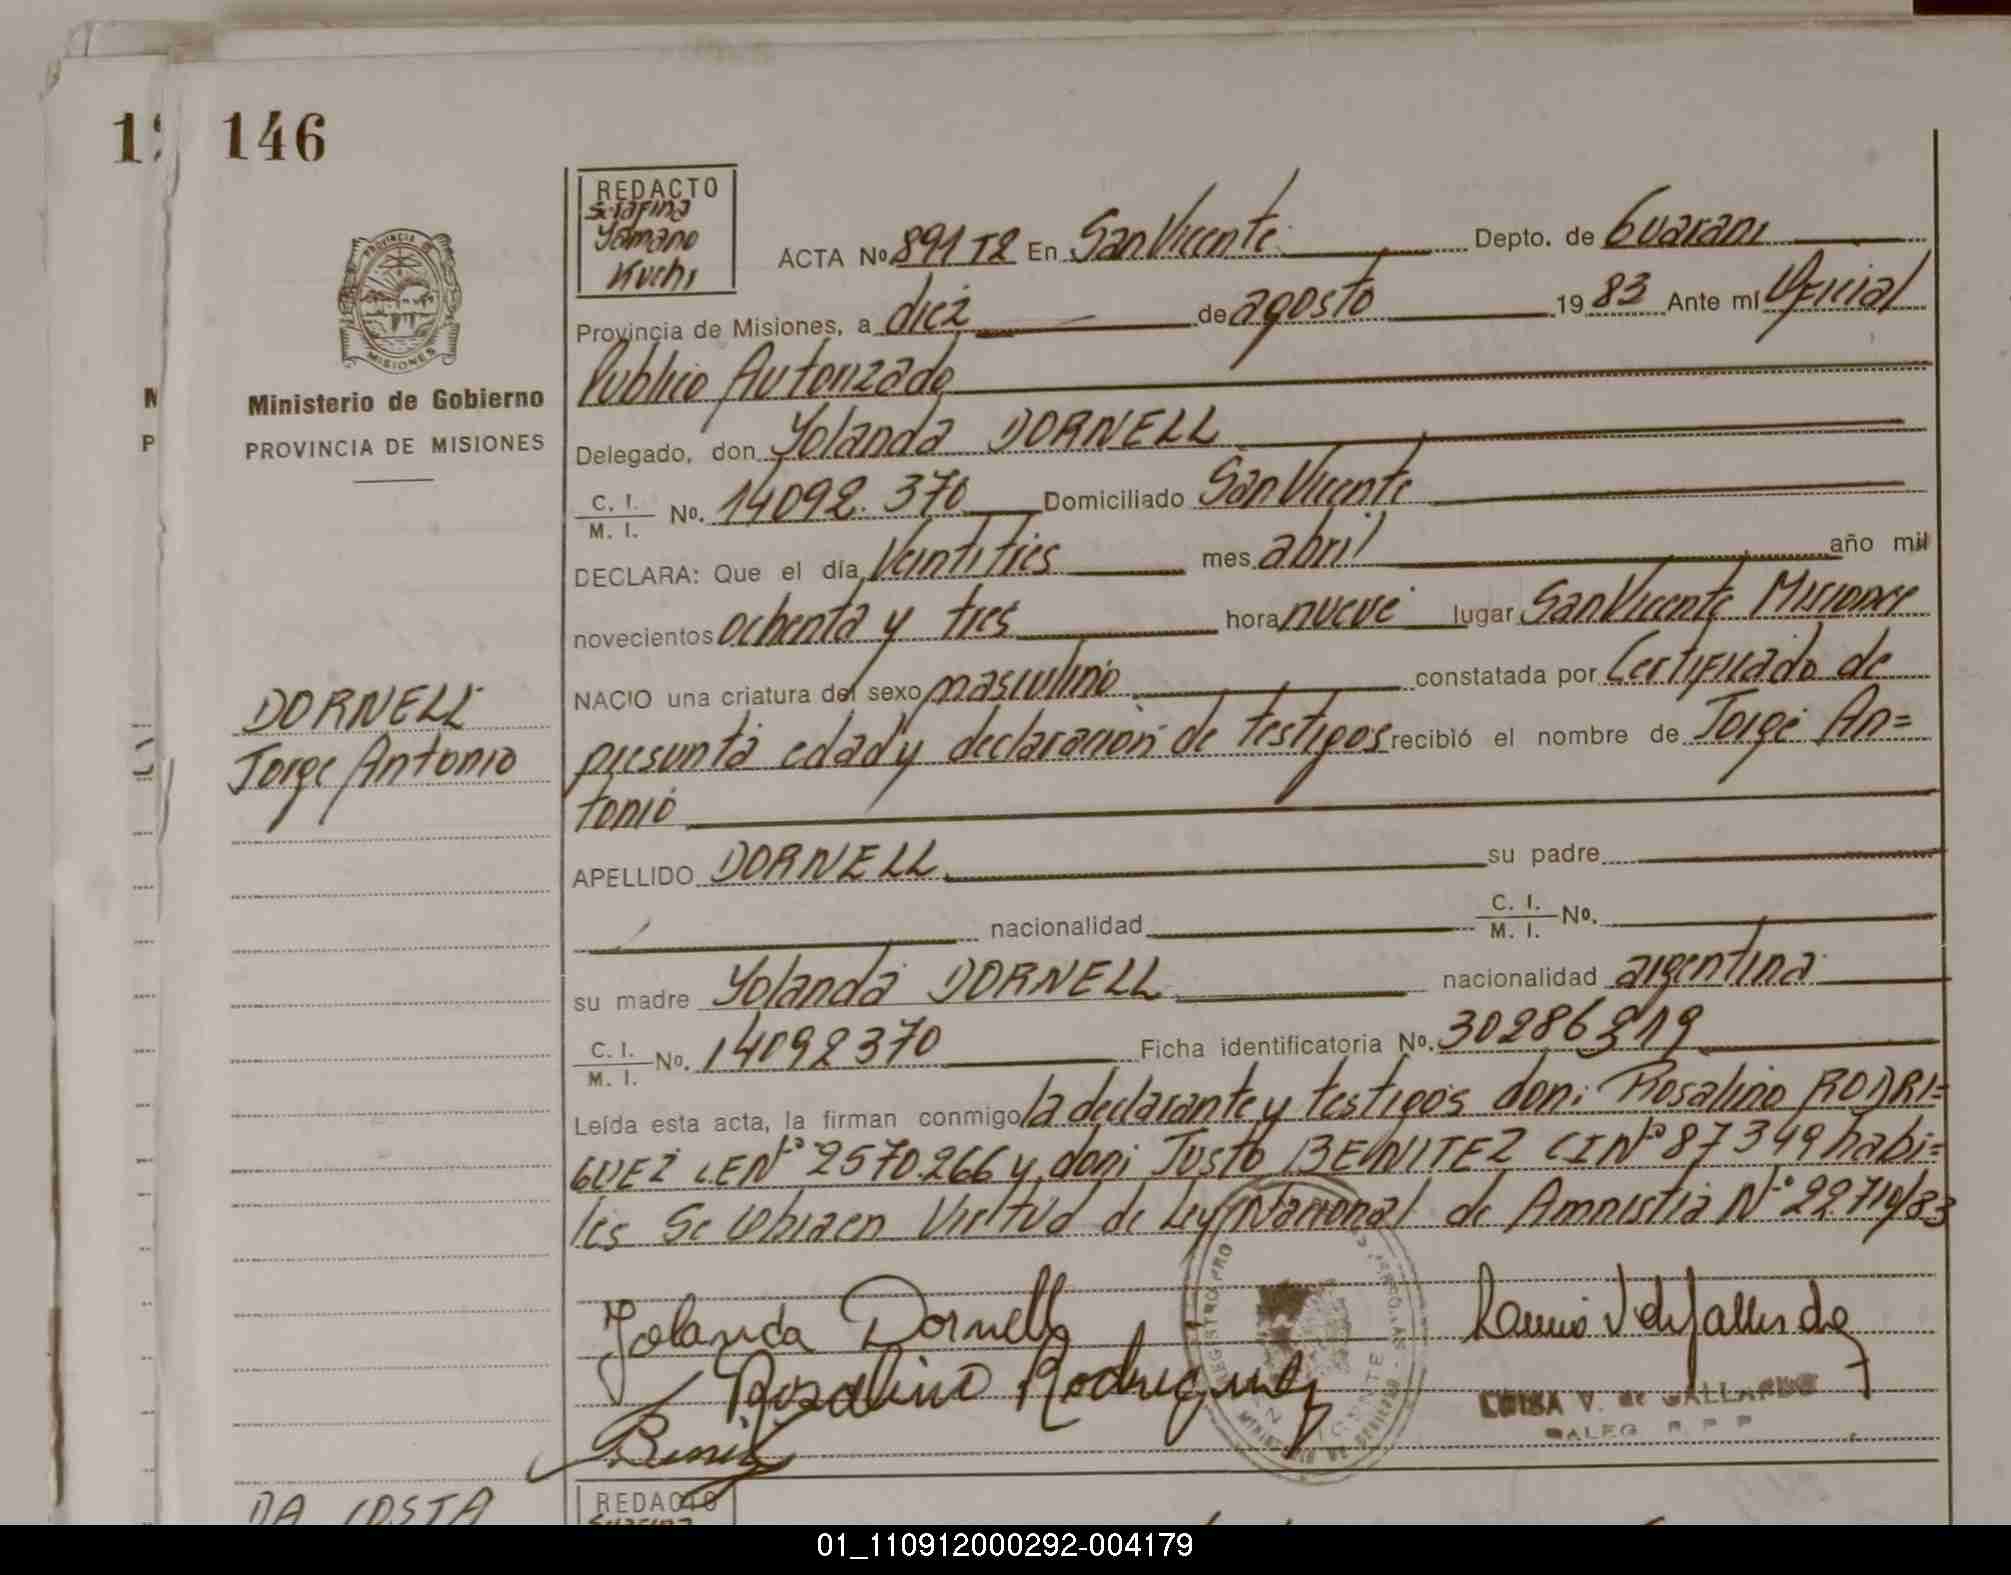 146
REDACTO
Serafina
Yamano
Kuchi
ACTA No 891 T2 En San Vicente Depto. de Guarani
Provincia de Misiones, a diez de agosto 19 83 Ante mí Oficial
Publico Autorizado
PROVINCIA DE
MISIONES
Ministerio de Gobierno
PROVINCIA DE MISIONES
Delegado, don Yolanda DORNELL
C. I.
M. I. No. 14092.370 Domiciliado San Vicente
DECLARA: Que el día Veintitrés mes abril año mil
novecientos ochenta y tres hora nueve lugar San Vicente Misiones
NACIO una criatura del sexo masculino constatada por Certificado de
DORNELL
Jorge Antonio
presunta edad y declaración de testigos recibió el nombre de Jorge An=
tonio
APELLIDO DORNELL su padre
nacionalidad C. I.
M. I. No.
su madre Yolanda DORNELL nacionalidad argentina
C. I.
M. I. No. 14092370 Ficha identificatoria No. 30286219
Leída esta acta, la firman conmigo la declarante y testigos don: Rosalino RODRI=
GUEZ LE Nº 2570.266 y don: Justo BENITEZ CI Nº 87349 habi=
les Se labra en Virtud de Ley Nacional de Amnistia Nº 22.710/83
Yolanda Dornell
Rosalino Rodriguez
LUISA V. de GALLARDO
DALEG. R. P. P.
DA COSTA
REDACTO
01_110912000292-004179